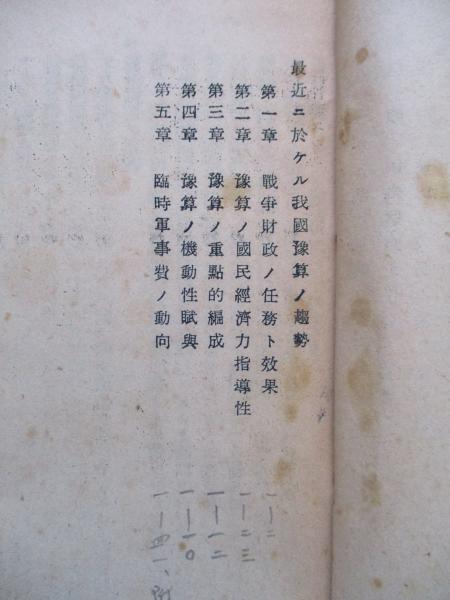 最近ニ於ケル我國豫算ノ趨勢
第一章 戰爭財政ノ任務ト效果 一—二
第二章 豫算ノ國民經濟力指導性 一—二三
第三章 豫算ノ重點的編成 一—一二
第四章 豫算ノ機動性賦與 一—一〇
第五章 臨時軍事費ノ動向 一—四一、附